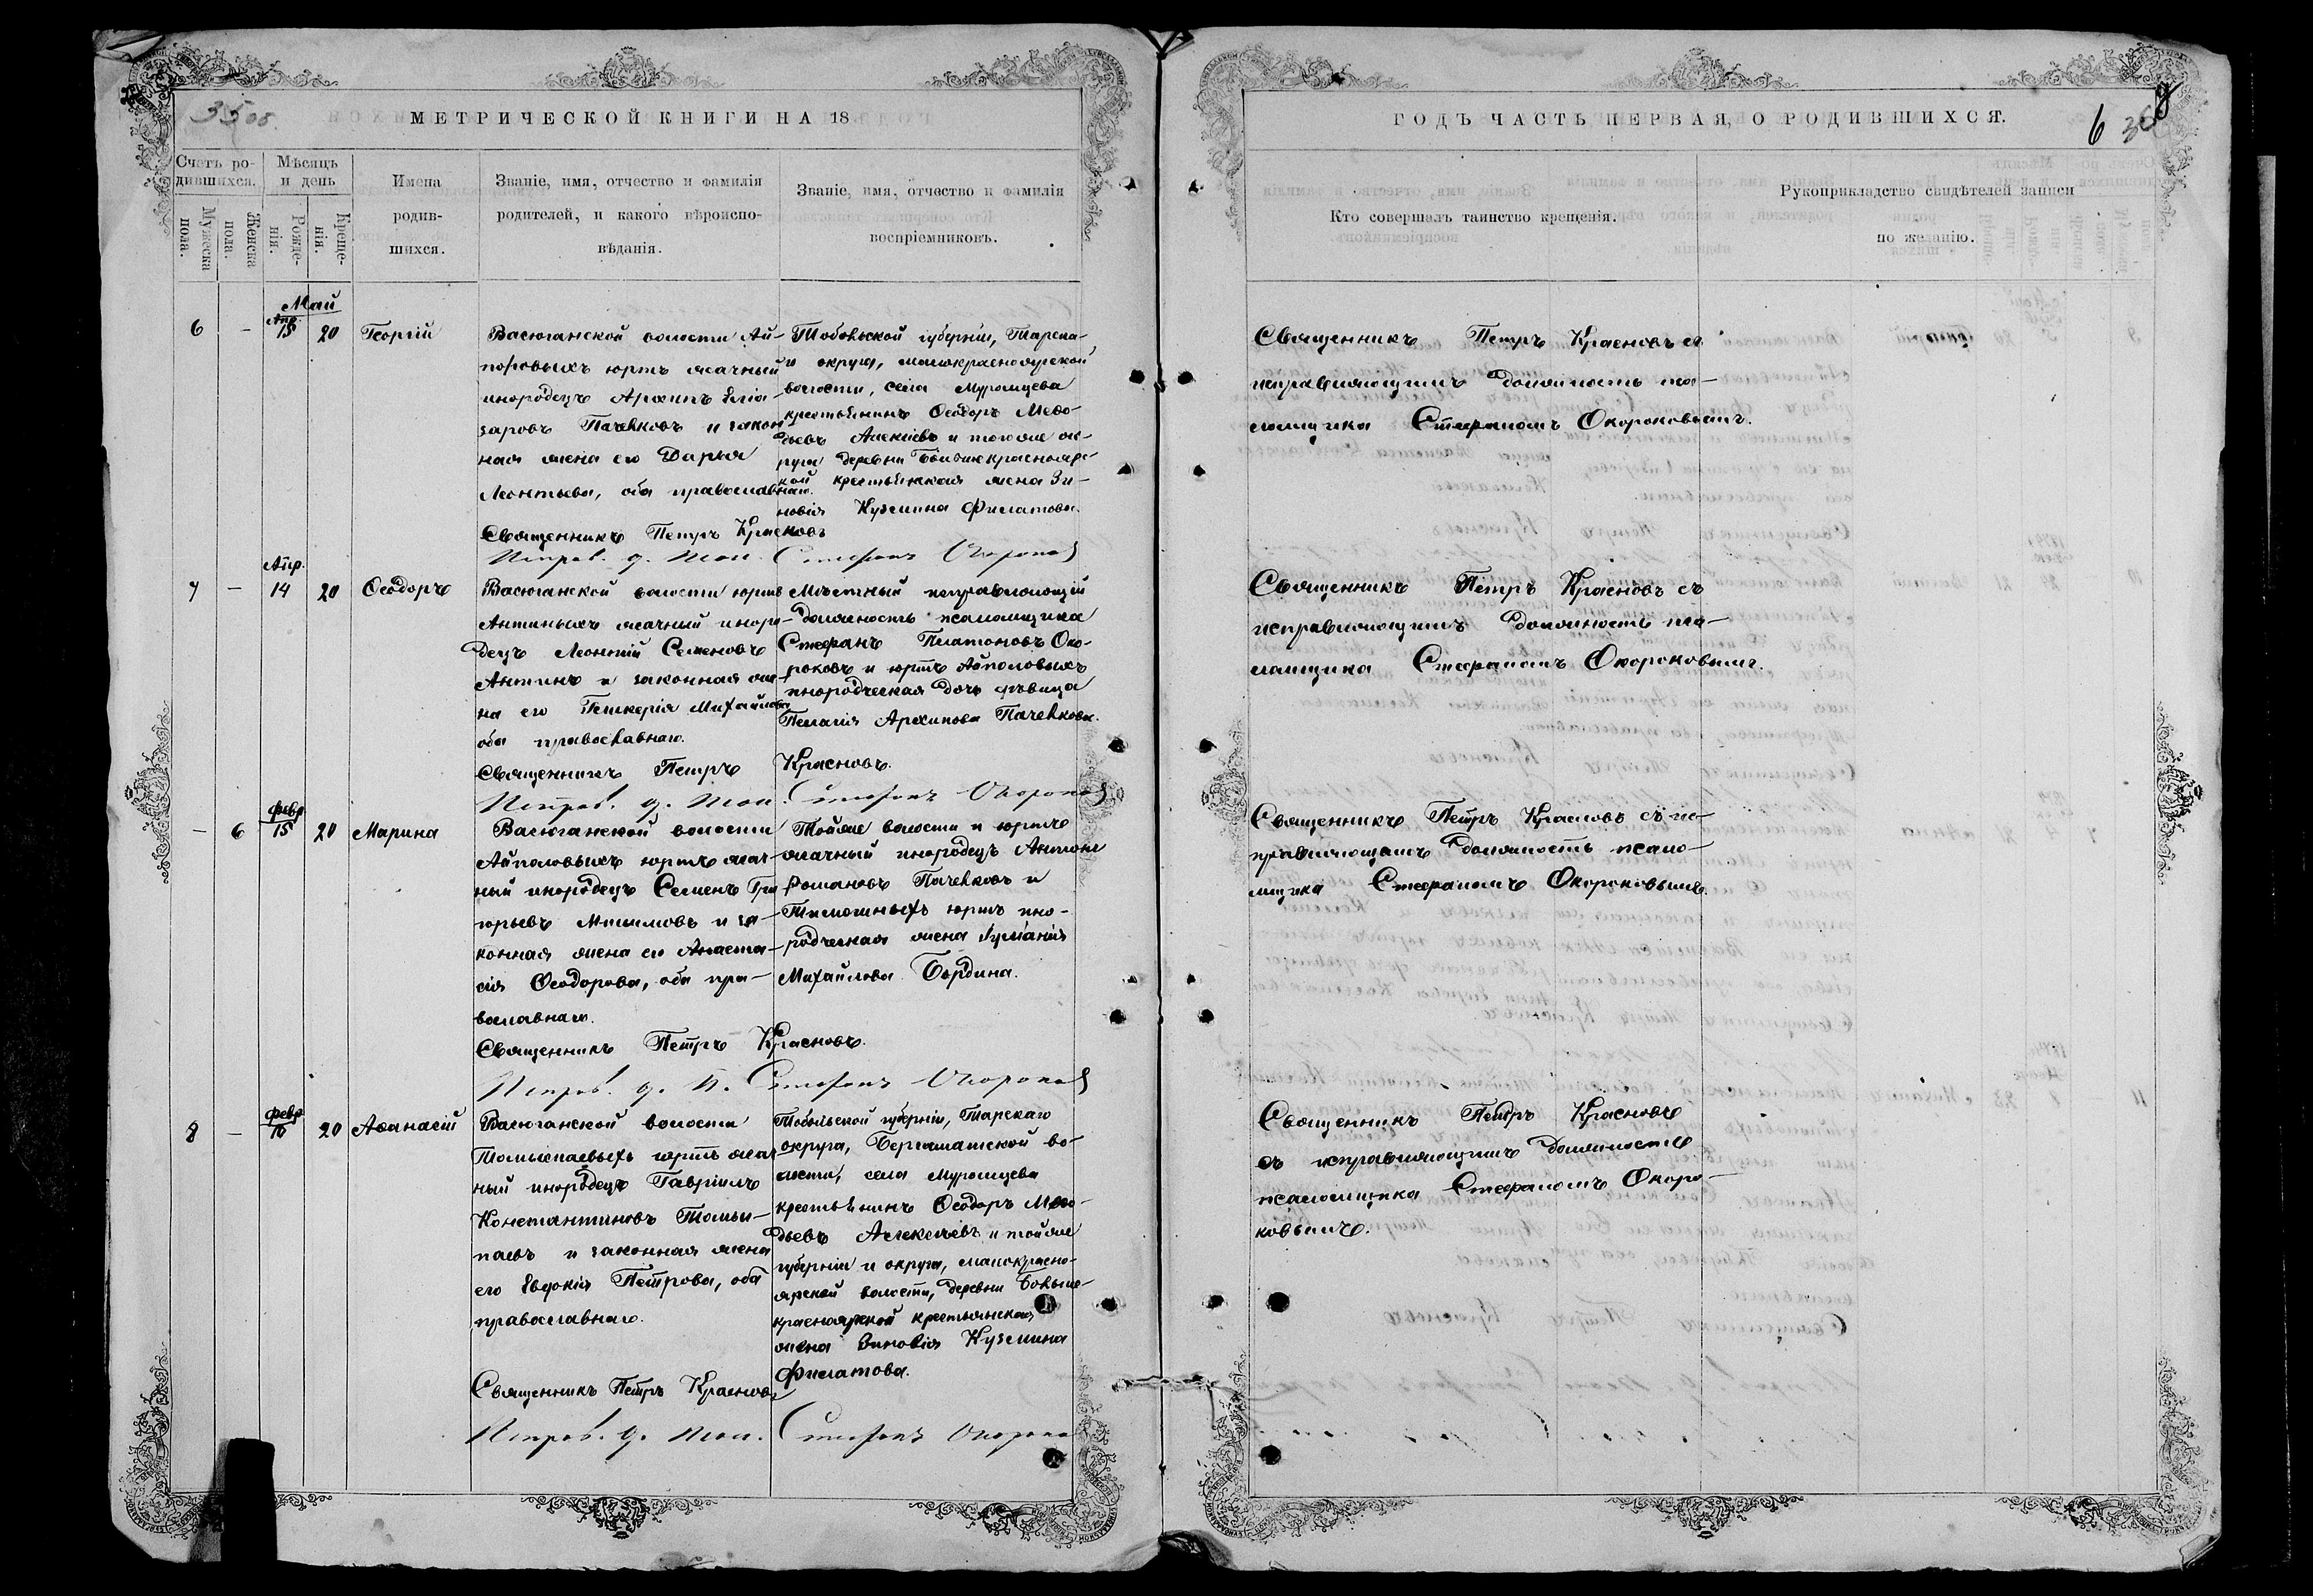 35 об.
МЕТРИЧЕСКОЙ КНИГИ НА 18
Счетъ ро-
дившихся.
Мѣсяцъ
и день
Мужеска
пола.
Женска
пола.
Рожде-
нія.
Креще-
нія.
Имена
родив-
шихся.
Званіе, имя, отчество и фамилія
родителей, и какого вѣроиспо-
вѣданія.
Званіе, имя, отчество и фамилія
воспріемниковъ.
Май
6 - Апр. 15 20 Георгій
Васюганской волости Ай-
половыхъ юртъ ясачный
инородецъ Архипъ Еліа-
заровъ Паченковъ и закон-
ная жена его Дарья
Леонтьева, оба православнаго.
Тобольской губерніи, Тарска-
и округа, малокрасноярской
волости, села Муромцева
крестьянинъ Ѳеодоръ Меѳо-
дьевъ Алексѣевъ и того же ок-
руга деревни Большекраснояр-
кой крестьянская жена Зи-
новія Кузмина Филатова.
Священникъ Петръ Красновъ
Исправ. д. псал. Стефанъ Окороковъ
7 - Апр. 14 20 Ѳеодоръ
Васюганской волости юртъ
Антиныхъ ясачный иноро-
децъ Леонтій Семеновъ
Антинъ и законная же-
на его Гликерія Михайлова
оба православнаго.
Мѣстный исправляющій
должность псаломщика
Стефанъ Платоновъ Око-
роковъ и юртъ Айполовыхъ
инородческая дочь дѣвица
Пелагія Архипова Паченкова.
Священникъ Петръ Красновъ.
Исправ. д. псал. Стефанъ Окороковъ
- 6 Февр. 15 20 Марина
Васюганской волости
Айполовыхъ юртъ ясач-
ный инородецъ Семенъ Гри
горьевъ Милимовъ и за-
конная жена его Анаста-
сія Ѳеодорова, оба пра-
вославнаго.
Тойже волости и юртъ
ясачный инородецъ Антонъ
Романовъ Паченковъ и
юртъ ино-
родческая жена
Михайлова Бордина.
Священникъ Петръ Красновъ.
Исправ. д. п. Стефанъ Окороковъ
8 - Февр. 16 20 Аѳанасій
Васюганской волости
юртъ ясач
ный инородецъ Гавріилъ
Константиновъ
и законная жена
его Евдокія Петрова, оба
православнаго.
Тобольской губерніи, Тарскаго
округа, Бергаматской во-
лости, села Муромцева
крестьянинъ Ѳеодоръ Меѳо-
дьевъ Алексѣевъ и той же
губерніи и округа, малокрасно-
ярской волости, деревни Больше-
красноярской крестьянская
жена Зиновія Кузмина
Филатова.
Священникъ Петръ Красновъ
Исправ. д. псал. Стефанъ Окороковъ
6 36
ГОДЪ ЧАСТЬ ПЕРВАЯ, О РОДИВШИХСЯ.
Кто совершалъ таинство крещенія.
Рукоприкладство свидѣтелей записи
по желанію.
Священникъ Петръ Красновъ съ
исправляющимъ должность пса-
ломщика Стефаномъ Окороковымъ.
Священникъ Петръ Красновъ съ
исправляющимъ должность пса-
ломщика Стефаномъ Окороковымъ.
Священникъ Петръ Красновъ съ ис-
правляющимъ должность псало-
мщика Стефаномъ Окороковымъ.
Священникъ Петръ Красновъ
съ исправляющимъ должность
псаломщика Стефаномъ Окоро-
ковымъ.